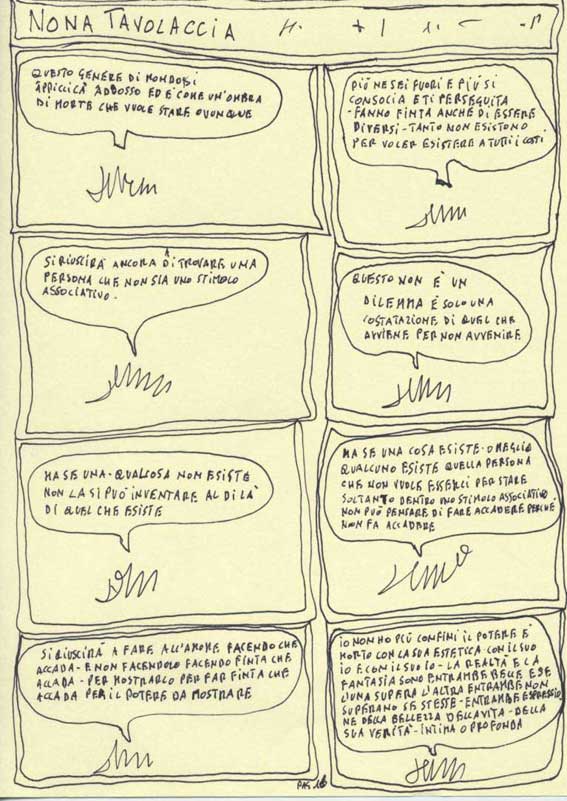 NONA TAVOLACCIA
QUESTO GENERE DI MONDO SI
APPICCICA ADDOSSO ED È COME UN'OMBRA
DI MORTE CHE VUOLE STARE OVUNQUE
PIÙ NE SEI FUORI E PIÙ SI
CONSOCIA E TI PERSEGUITA
- FANNO FINTA ANCHE DI ESSERE
DIVERSI - TANTO NON ESISTONO
PER VOLER ESISTERE A TUTTI I COSTI
SI RIUSCIRÀ ANCORA A DI TROVARE UNA
PERSONA CHE NON SIA UNO STIMOLO
ASSOCIATIVO -
QUESTO NON È UN
DILEMMA È SOLO UNA
COSTATAZIONE DI QUEL CHE
AVVIENE PER NON AVVENIRE
MA SE UNA - QUALCOSA NON ESISTE
NON LA SI PUÒ INVENTARE AL DI LÀ
DI QUEL CHE ESISTE
MA SE UNA COSA ESISTE - O MEGLIO
QUALCUNO ESISTE QUELLA PERSONA
CHE NON VUOLE ESSERCI PER STARE
SOLTANTO DENTRO UNO STIMOLO ASSOCIATIVO
NON PUÒ PENSARE DI FARE ACCADERE PERCHÉ
NON FA ACCADERE
SI RIUSCIRÀ A FARE ALL'AMORE FACENDO CHE
ACCADA - E NON FACENDOLO FACENDO FINTA CHE
ACCADA - PER MOSTRARLO PER FAR FINTA CHE
ACCADA PER IL POTERE DA MOSTRARE
IO NON HO PIÙ CONFINI IL POTERE È
MORTO CON LA SUA ESTETICA CON IL SUO
IO E CON IL SUO IO - LA REALTÀ E LA
FANTASIA SONO ENTRAMBE BELLE E SE
L'UNA SUPERA L'ALTRA ENTRAMBE NON
SUPERANO SE STESSE - ENTRAMBE ESPRESSIO
NE DELLA BELLEZZA DELLA VITA - DELLA
SUA VERITÀ - INTIMA O PROFONDA
PAG. 16